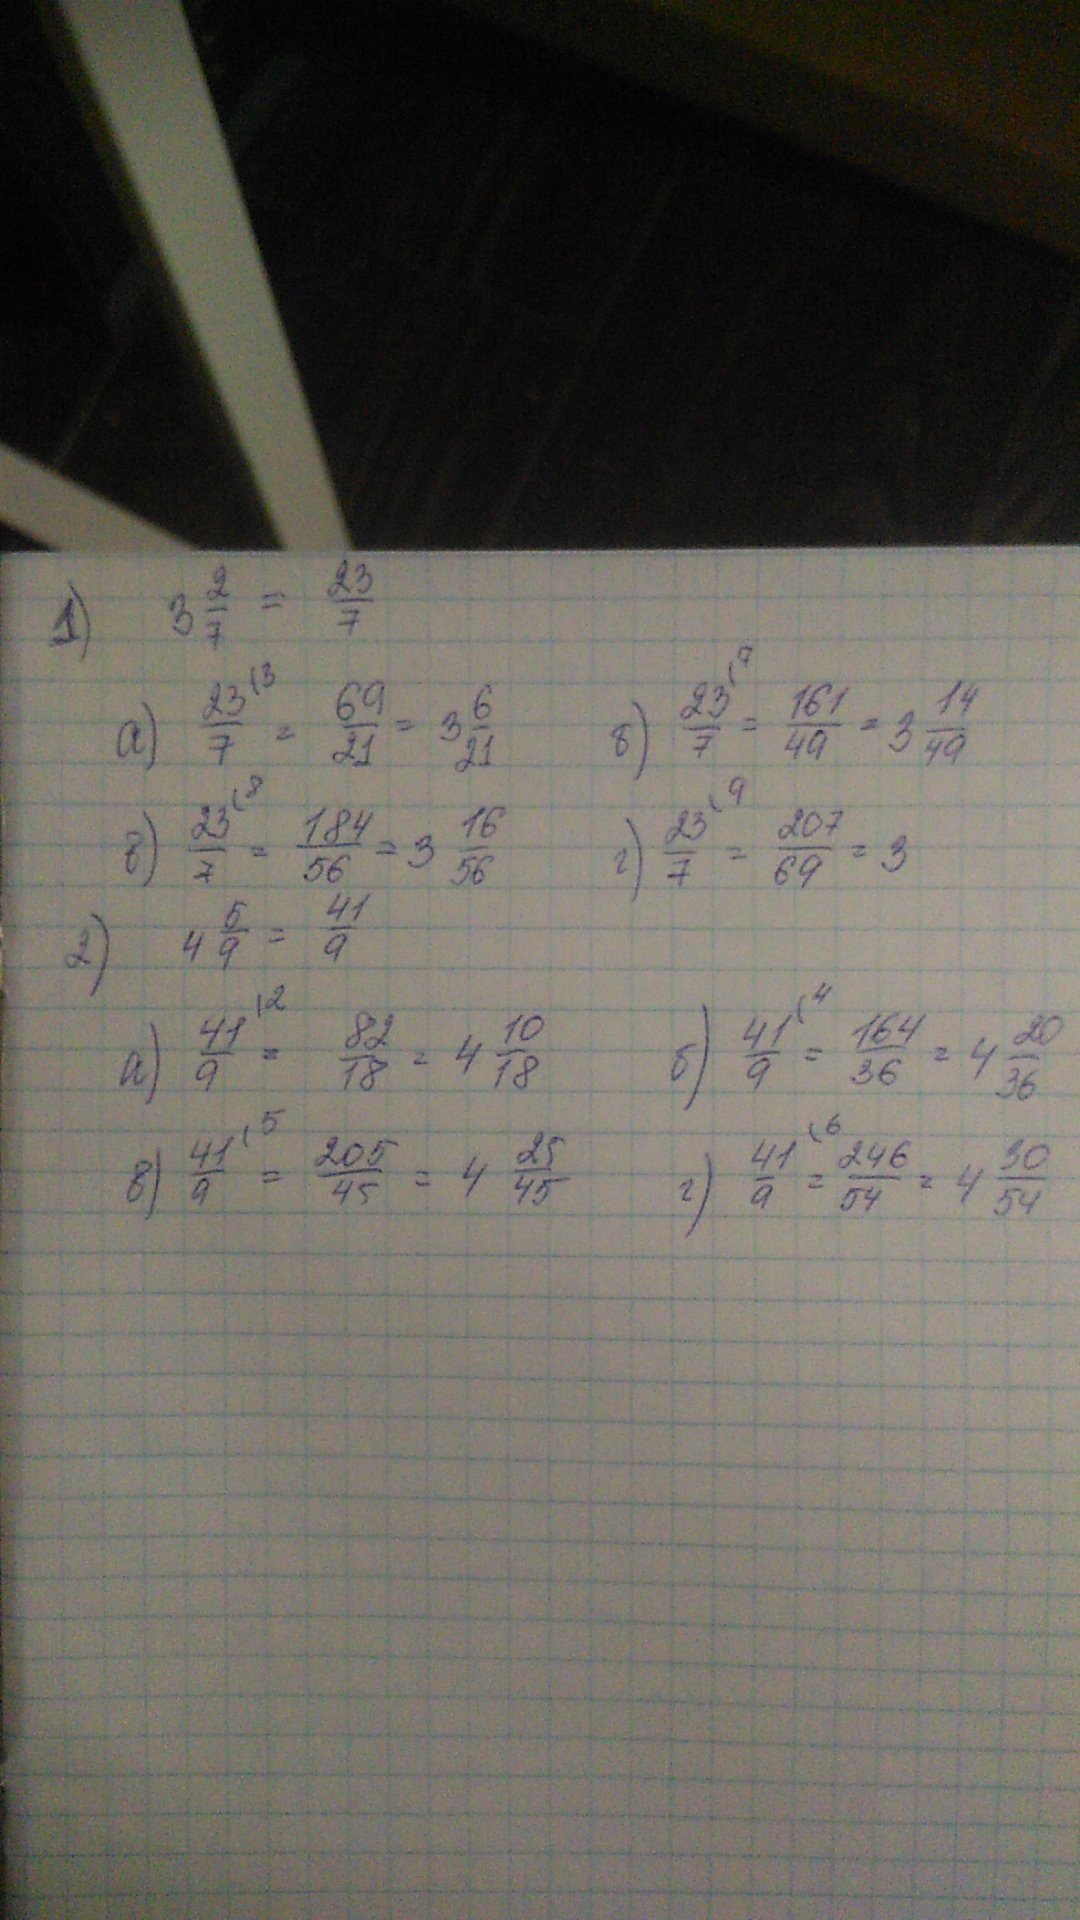 1) 3 2/7 = 23/7
а) 23/7 (3 = 69/21 = 3 6/21 б) 23/7 (7 = 161/49 = 3 14/49
в) 23/7 (8 = 184/56 = 3 16/56 г) 23/7 (9 = 207/69 = 3
2) 4 5/9 = 41/9
а) 41/9 (2 = 82/18 = 4 10/18 б) 41/9 (4 = 164/36 = 4 20/36
в) 41/9 (5 = 205/45 = 4 25/45 г) 41/9 (6 = 246/54 = 4 30/54